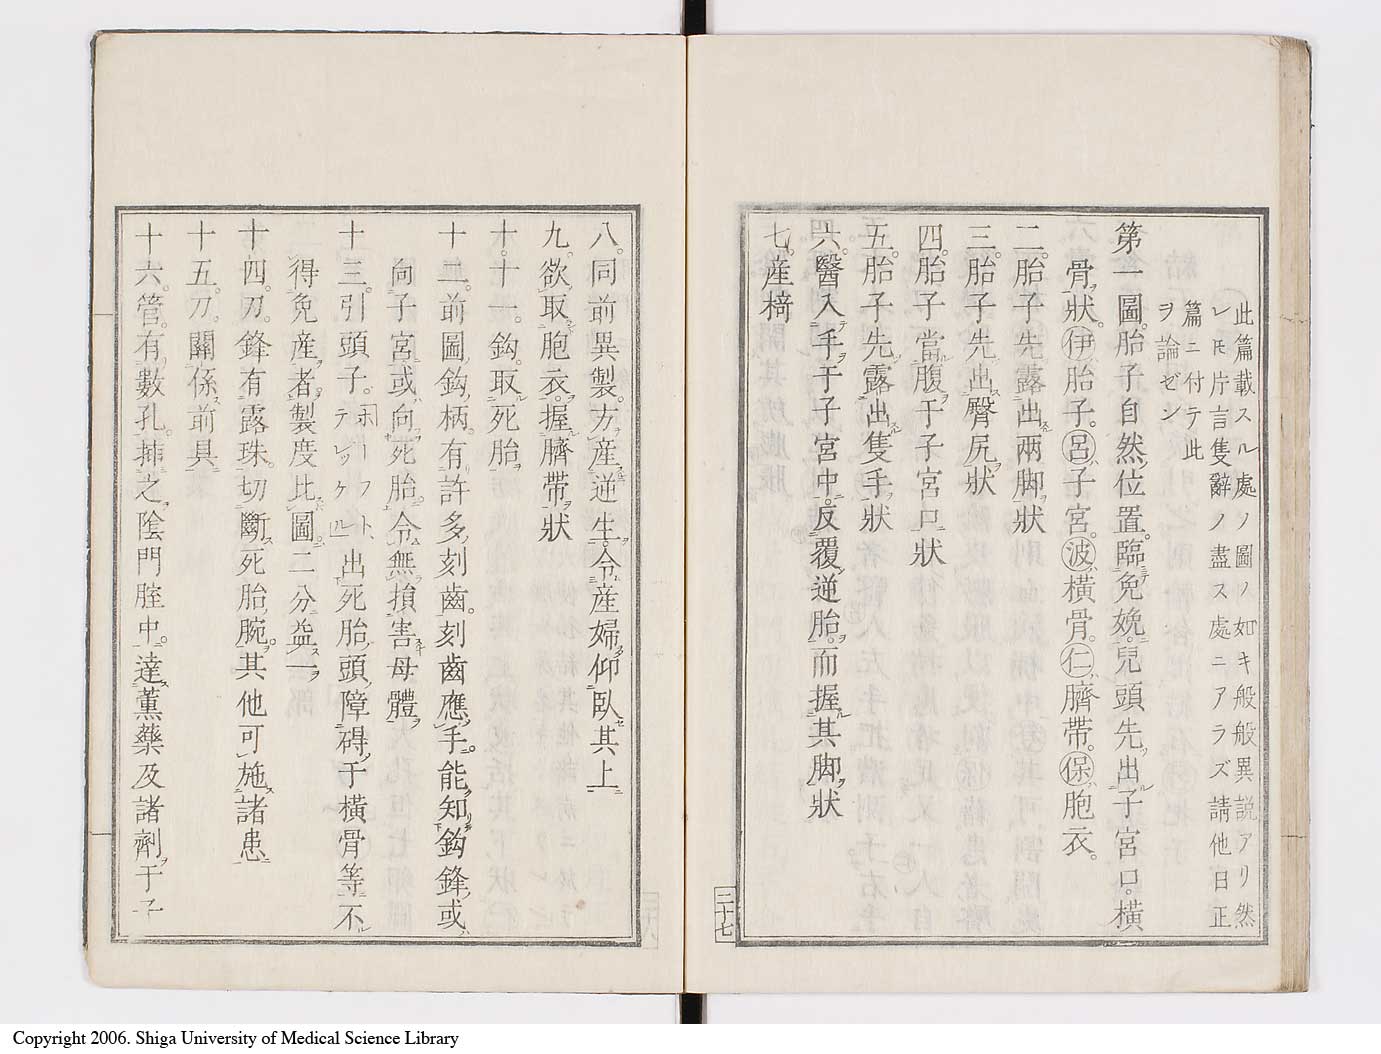 此篇載スル處ノ圖ノ如キ般般異説アリ然
レ𪜈片言隻辭ノ盡ス處ニアラズ請他日正
篇ニ付テ此
ヲ論ゼン
第一圖。胎子自然位置。臨免娩。兒頭先出子宮口。横
骨狀。㋑伊胎子。呂子宮。波横骨。仁臍帶。保胞衣。
二。胎子先露出兩脚狀
三。胎子先出臀尻狀
四。胎子當腹于子宮口狀
五。胎子先露出隻手狀
六。醫入手于子宮中。反覆逆胎。而握其脚狀
七。産椅
二十七
八。同前異製。方産逆生。令産婦仰臥其上
九。欲取胞衣。握臍帶狀
十。十一。鈎。取死胎
十二。前圖鈎柄。有許多刻齒。刻齒應手。能知鈎鋒或
向子宮或向死胎。令無損害母體
十三。引頭子。ホーフトテレッケル出死胎頭障碍于横骨等不
得免産者。製度比圖。二分益一
十四。刀。鋒有露珠。切斷死胎腕。其他可施諸患
十五。刀。關係前具
十六。管。有數孔。挿之陰門腟中。達薫藥及諸劑于子
Copyright 2006. Shiga University of Medical Science Library